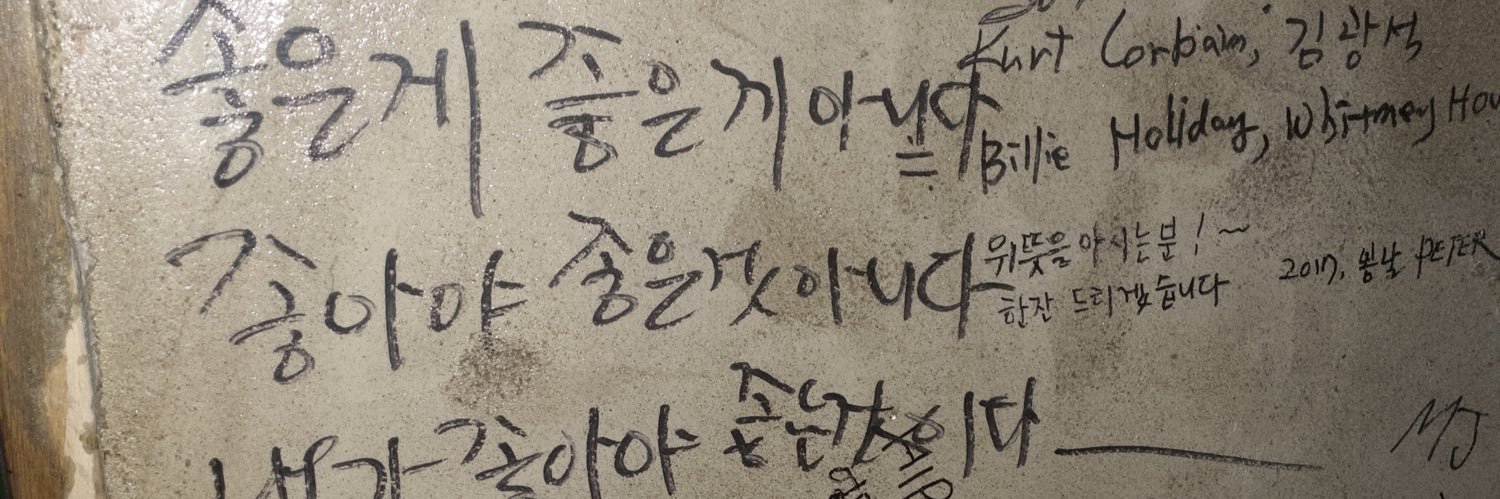 좋은게 좋은게 아니다
Kurt Corbain, 김광석
Billie Holiday, Whitney Hou
좋아야 좋은것 아니다
위뜻을 아시는분!~
한잔 드리겠습니다
2017, 봄날 PETER
내가 좋아야 좋은것이다
MJ